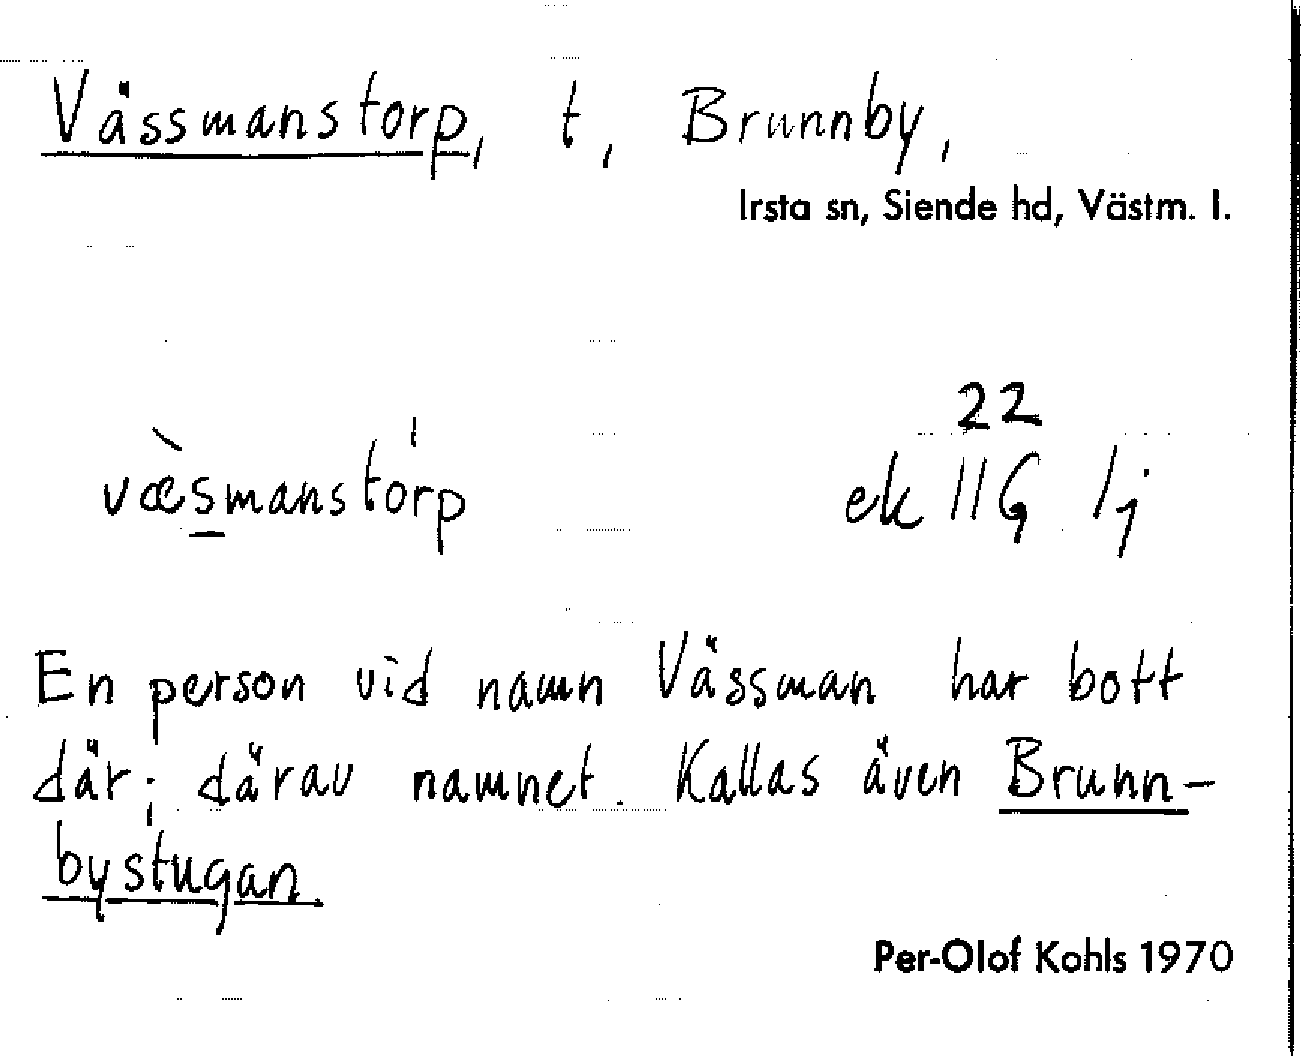 Vässmanstorp, t, Brunnby,
Irsta sn, Siende hd, Västm. l.
22
væ̀smanstɔrp ek 11G 1j
En person vid namn Vässman har bott
där; därav namnet. Kallas även Brunn-
bystugan.
Per-Olof Kohls 1970